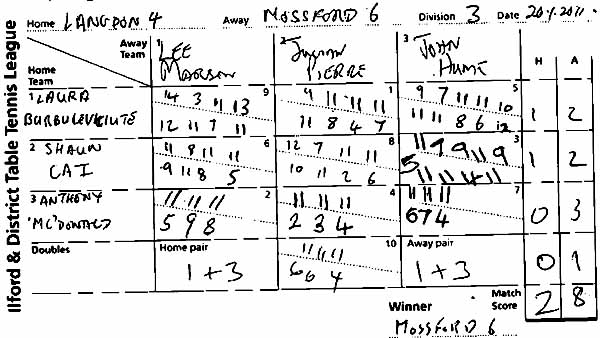 Ilford & District Table Tennis League
Home LANGDON 4 Away MOSSFORD 6 Division 3 Date
Away Team
Home Team
1 LEE MADISON
2 PIERRE
3 JOHN HUNT
1 LAURA BURBULEVICIUTE
9
14 3 11 13
12 11 7 11
1
9 11 11 11
11 8 4 7
5
9 7 11 11 10
11 11 8 6 12
1 2
2 SHAUN CAI
6
11 8 11 11
9 11 8 5
8
12 7 11 11
10 11 2 6
3
11 7 9 11 9
5 11 11 4 11
1 2
3 ANTHONY 'MC'DONALD
2
11 11 11
5 9 8
4
11 11 11
2 3 4
7
11 11 11
6 7 4
0 3
Doubles
Home pair
1 + 3
10
11 11 11
6 6 4
Away pair
1 + 3
0 1
H A
Winner
Match Score
2 8
MOSSFORD 6